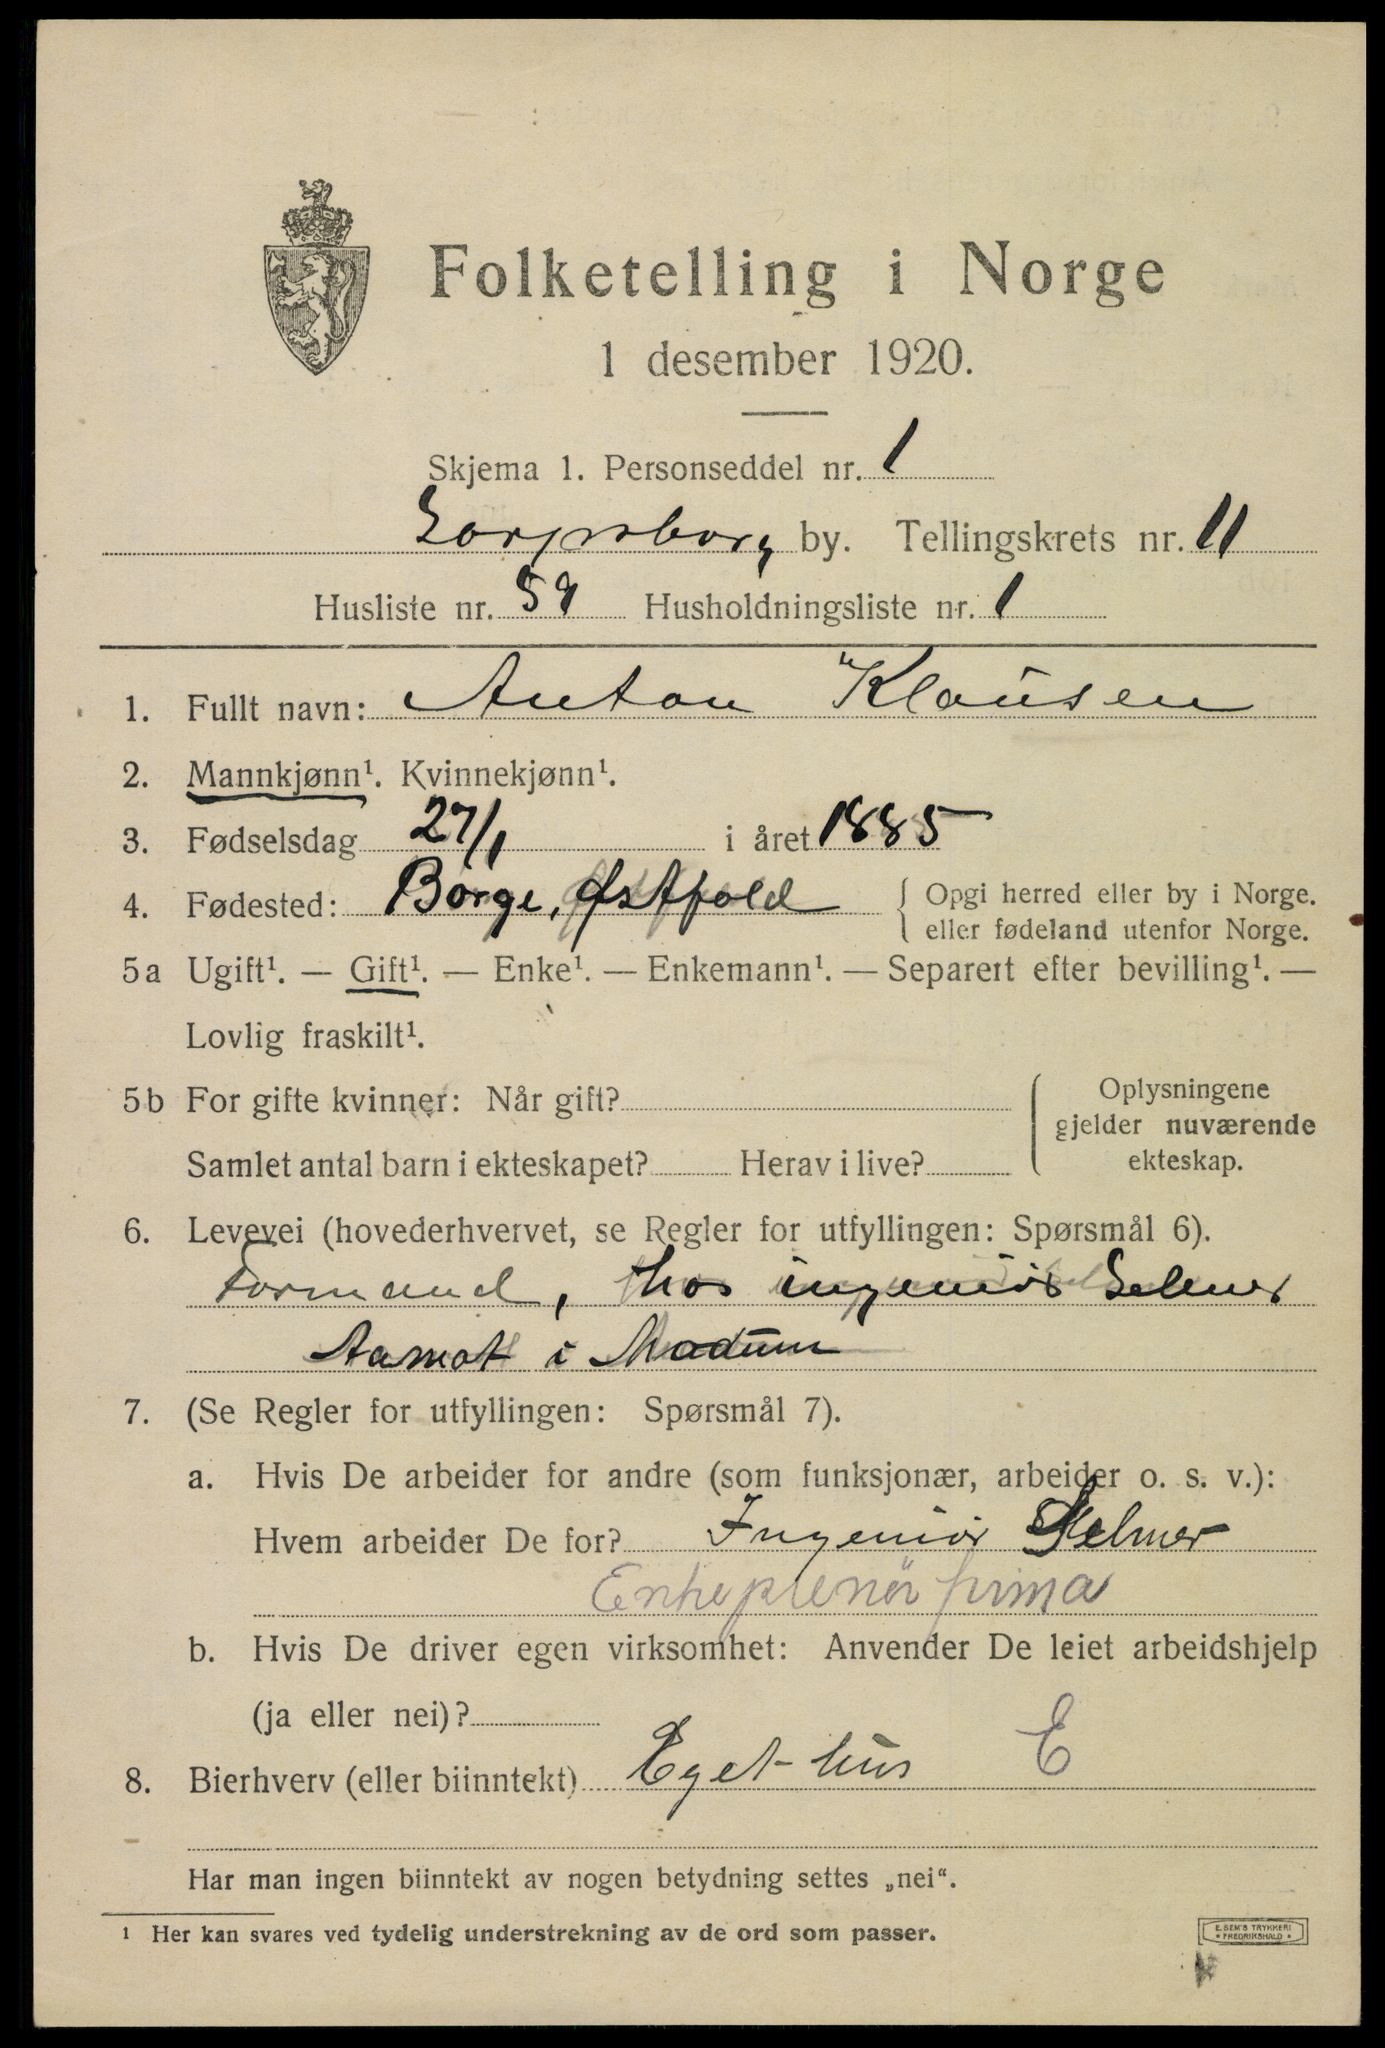 Folketelling i Norge
1 desember 1920.
Skjema 1. Personseddel nr. 1
Sarpsborg by. Tellingskrets nr. 11
Husliste nr. 59 Husholdningsliste nr. 1
1. Fullt navn: Anton Klausen
2. Mannkjønn¹. Kvinnekjønn¹.
3. Fødselsdag 27/1 i året 1885
4. Fødested: Borge, Østfold { Opgi herred eller by i Norge.
eller fødeland utenfor Norge.
5a Ugift¹. — Gift¹. — Enke¹. — Enkemann¹. — Separert efter bevilling¹. —
Lovlig fraskilt¹.
5b For gifte kvinner: Når gift? { Oplysningene
gjelder nuværende
Samlet antal barn i ekteskapet? Herav i live? ekteskap.
6. Levevei (hovederhvervet, se Regler for utfyllingen: Spørsmål 6).
Formand, hos ingeniör Selmer
Aamot i Modum
7. (Se Regler for utfyllingen: Spørsmål 7).
a. Hvis De arbeider for andre (som funksjonær, arbeider o. s. v.):
Hvem arbeider De for? Ingeniör Selmer
Entreprenör firma
b. Hvis De driver egen virksomhet: Anvender De leiet arbeidshjelp
(ja eller nei)?
8. Bierhverv (eller biinntekt) Eget hus E
Har man ingen biinntekt av nogen betydning settes „nei“.
¹ Her kan svares ved tydelig understrekning av de ord som passer.
E. SEM'S TRYKKERI
• FREDRIKSHALD •